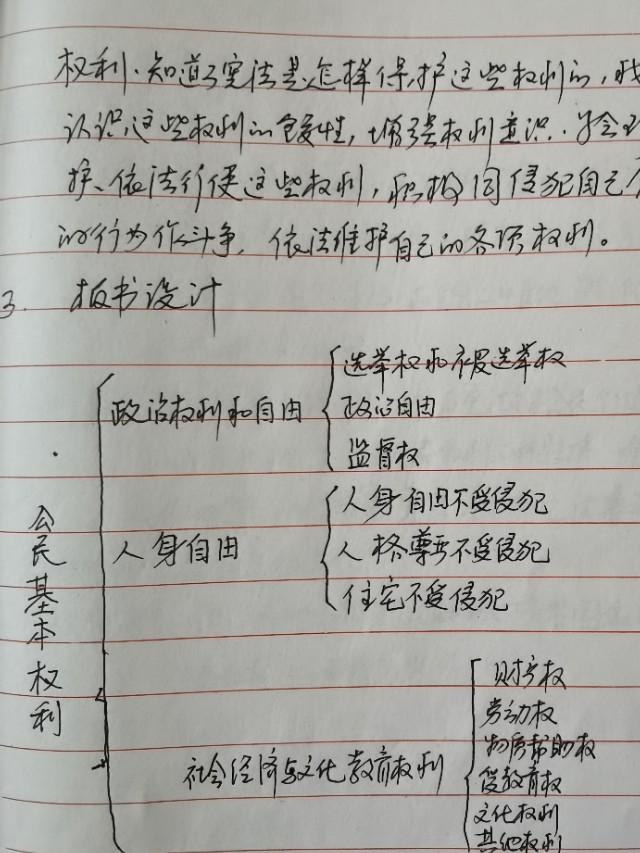 权利.知道了宪法是怎样保护这些权利的,我
认识这些权利的重要性,增强权利意识.学会
护、依法行使这些权利,积极同侵犯自己
的行为作斗争,依法维护自己的各项权利。
3. 板书设计
公民基本权利
政治权利和自由
选举权和被选举权
政治自由
监督权
人身自由
人身自由不受侵犯
人格尊严不受侵犯
住宅不受侵犯
社会经济与文化教育权利
财产权
劳动权
物质帮助权
受教育权
文化权利
其他权利